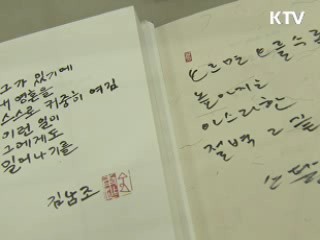 KTV
그가 있기에
내 영혼을
스스로 귀중히 여김
이런 일이
그에게도
일어나기를
김남조
오르면 오를수록
높아지는
아스라한
절벽 그 끝